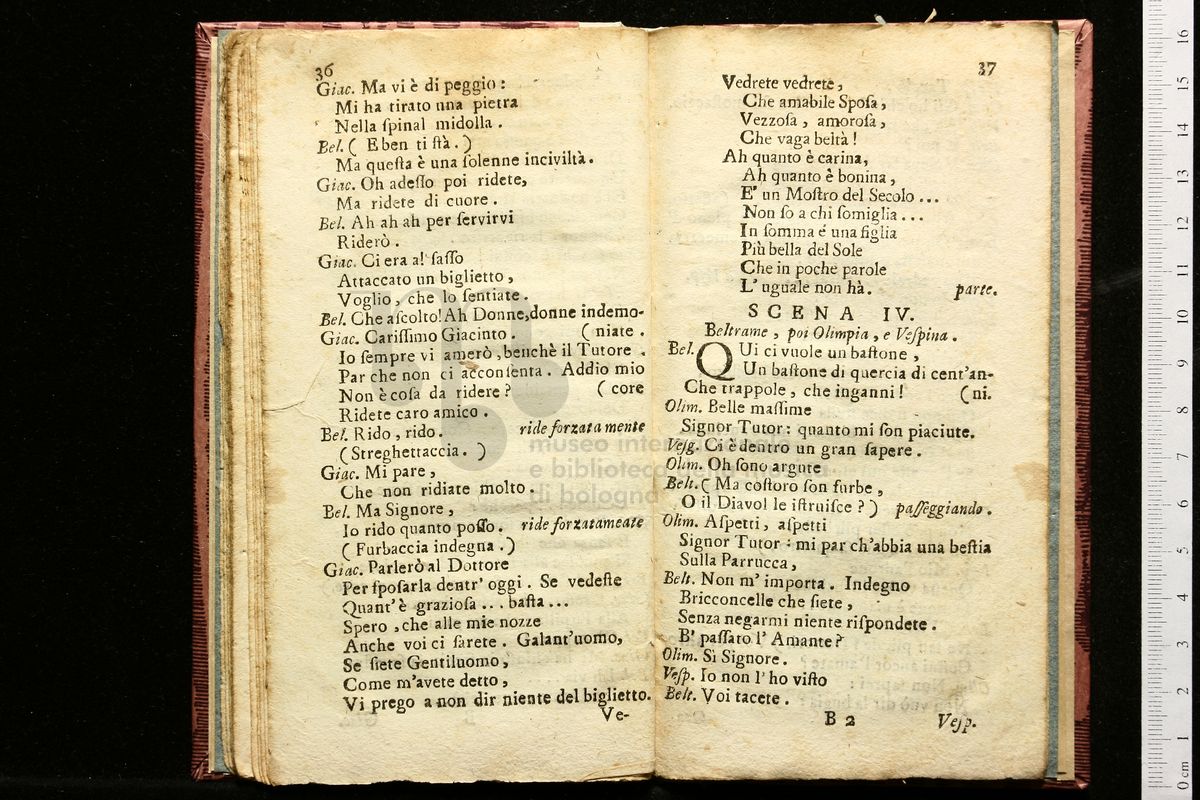 36
Giac. Ma vi è di peggio :
Mi ha tirato una pietra
Nella ſpinal midolla .
Bel. ( E ben ti ſtà . )
Ma queſta è una ſolenne inciviltà .
Giac. Oh adeſſo poi ridete,
Ma ridete di cuore .
Bel. Ah ah ah per ſervirvi
Riderò .
Giac. Ci era al ſaſſo
Attaccato un biglietto ,
Voglio , che lo ſentiate .
Bel. Che aſcolto! Ah Donne,donne indemo-
Giac. Cariſſimo Giacinto . ( niate .
Io ſempre vi amerò , benchè il Tutore .
Par che non ci acconſenta . Addio mio
Non è coſa da ridere ? ( core
Ridete caro amico .
Bel. Rido , rido . ride forzata mente
( Streghettaccia . )
Giac. Mi pare ,
Che non ridiate molto .
Bel. Ma Signore ,
Io rido quanto poſſo . ride forzatameate
( Furbaccia indegna . )
Giac. Parlerò al Dottore
Per ſpoſarla dentr' oggi . Se vedeſte
Quant' è grazioſa . . . baſta . . .
Spero , che alle mie nozze
Anche voi ci ſarete . Galant'uomo,
Se ſiete Gentiluomo ,
Come m'avete detto ,
Vi prego a non dir niente del biglietto.
Ve-
37
Vedrete vedrete ,
Che amabile Spoſa ,
Vezzoſa , amoroſa ,
Che vaga beltà !
Ah quanto è carina,
Ah quanto è bonina ,
E' un Moſtro del Secolo . . .
Non ſo a chi ſomiglia . . .
In ſomma é una figlia
Più bella del Sole
Che in poche parole
L' uguale non hà . parte.
SCENA IV.
Beltrame , poi Olimpia , e Veſpina .
Bel. QUi ci vuole un baſtone ,
Un baſtone di quercia di cent'an-
Che trappole , che inganni ! ( ni.
Olim. Belle maſſime
Signor Tutor : quanto mi ſon piaciute.
Veſg. Ci è dentro un gran ſapere .
Olim. Oh ſono argute
Belt. ( Ma coſtoro ſon furbe ,
O il Diavol le iſtruiſce ? ) paſſeggiando .
Olim. Aſpetti , aſpetti
Signor Tutor : mi par ch'abbia una beſtia
Sulla Parrucca ,
Belt. Non m' importa . Indegno
Bricconcelle che ſiete ,
Senza negarmi niente riſpondete .
B' paſſato l' Amante ?
Olim. Sì Signore .
Veſp. Io non l' ho viſto
Belt. Voi tacete .
B 2 Veſp.
museo internazionale
e biblioteca della musica
di bologna
16
15
14
13
12
11
10
9
8
7
6
5
4
3
2
1
0 cm